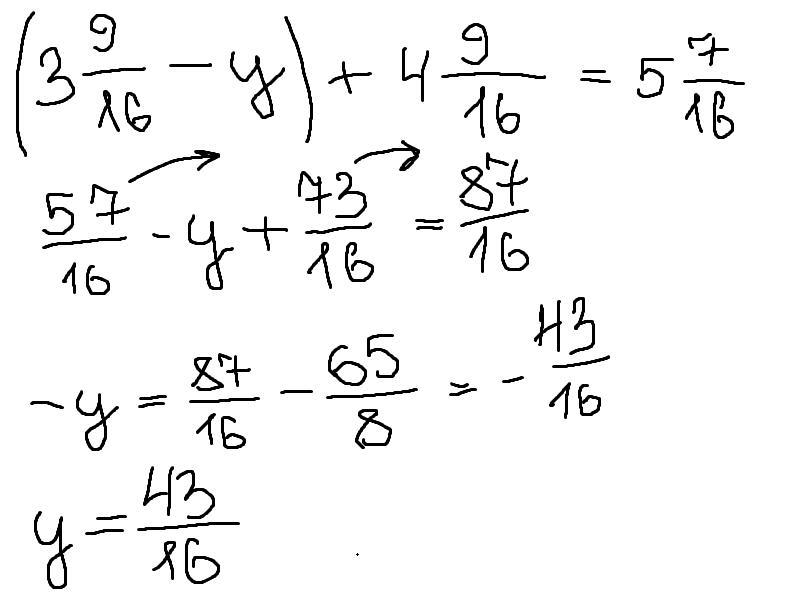 (3 9/16 - y) + 4 9/16 = 5 7/16
57/16 - y + 73/16 = 87/16
-y = 87/16 - 65/8 = - 43/16
y = 43/16